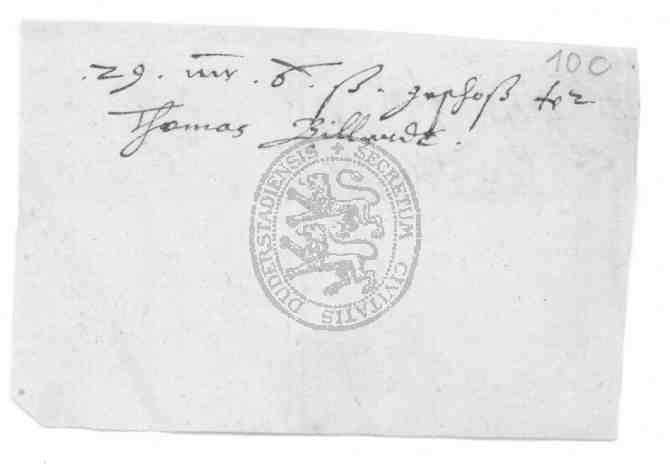 100
.29. mr. 6. ß. geschoß
Thomas
SECRETUM CIVITATIS DUDERSTADIENSIS